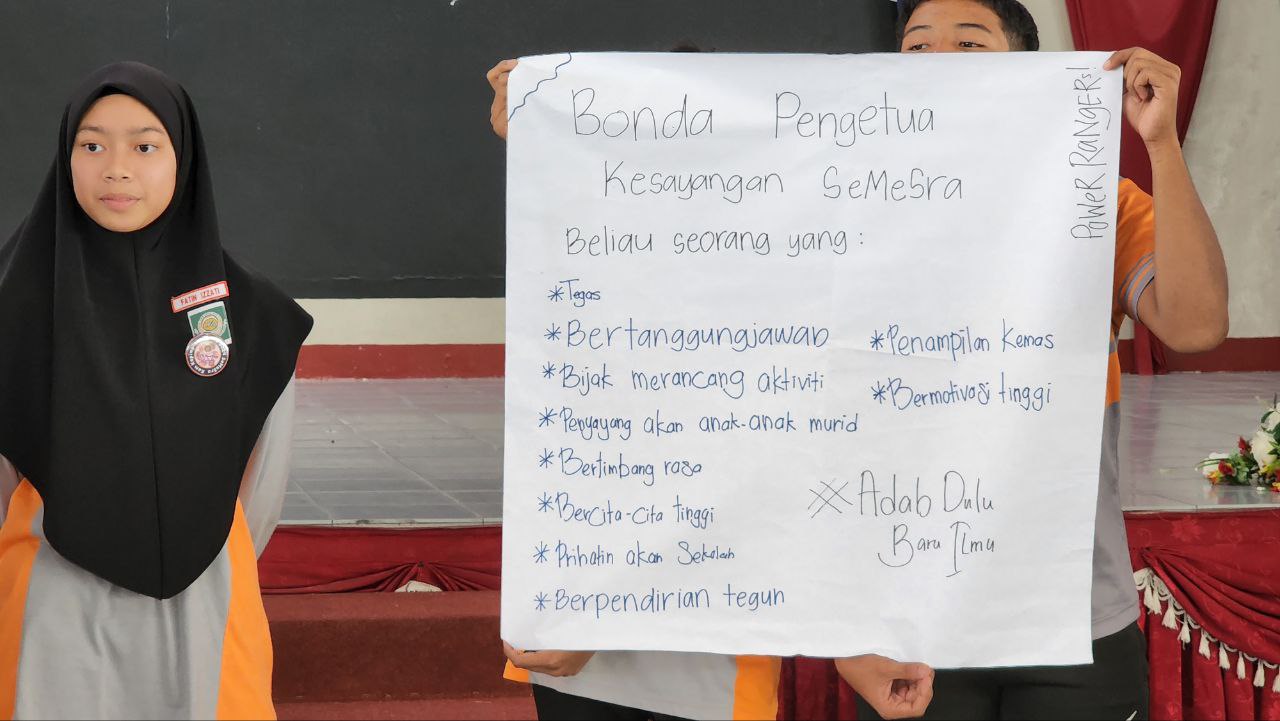 Bonda Pengetua
Kesayangan SeMeSra
Beliau seorang yang :
*Tegas
*Bertanggungjawab
*Bijak merancang aktiviti
*Penyayang akan anak-anak murid
*Bertimbang rasa
*Bercita-cita tinggi
*Prihatin akan Sekolah
*Berpendirian teguh
*Penampilan Kemas
*Bermotivasi tinggi
※Adab Dulu
Baru Ilmu
PoWeR RaNgERs!
FATIN IZZATI